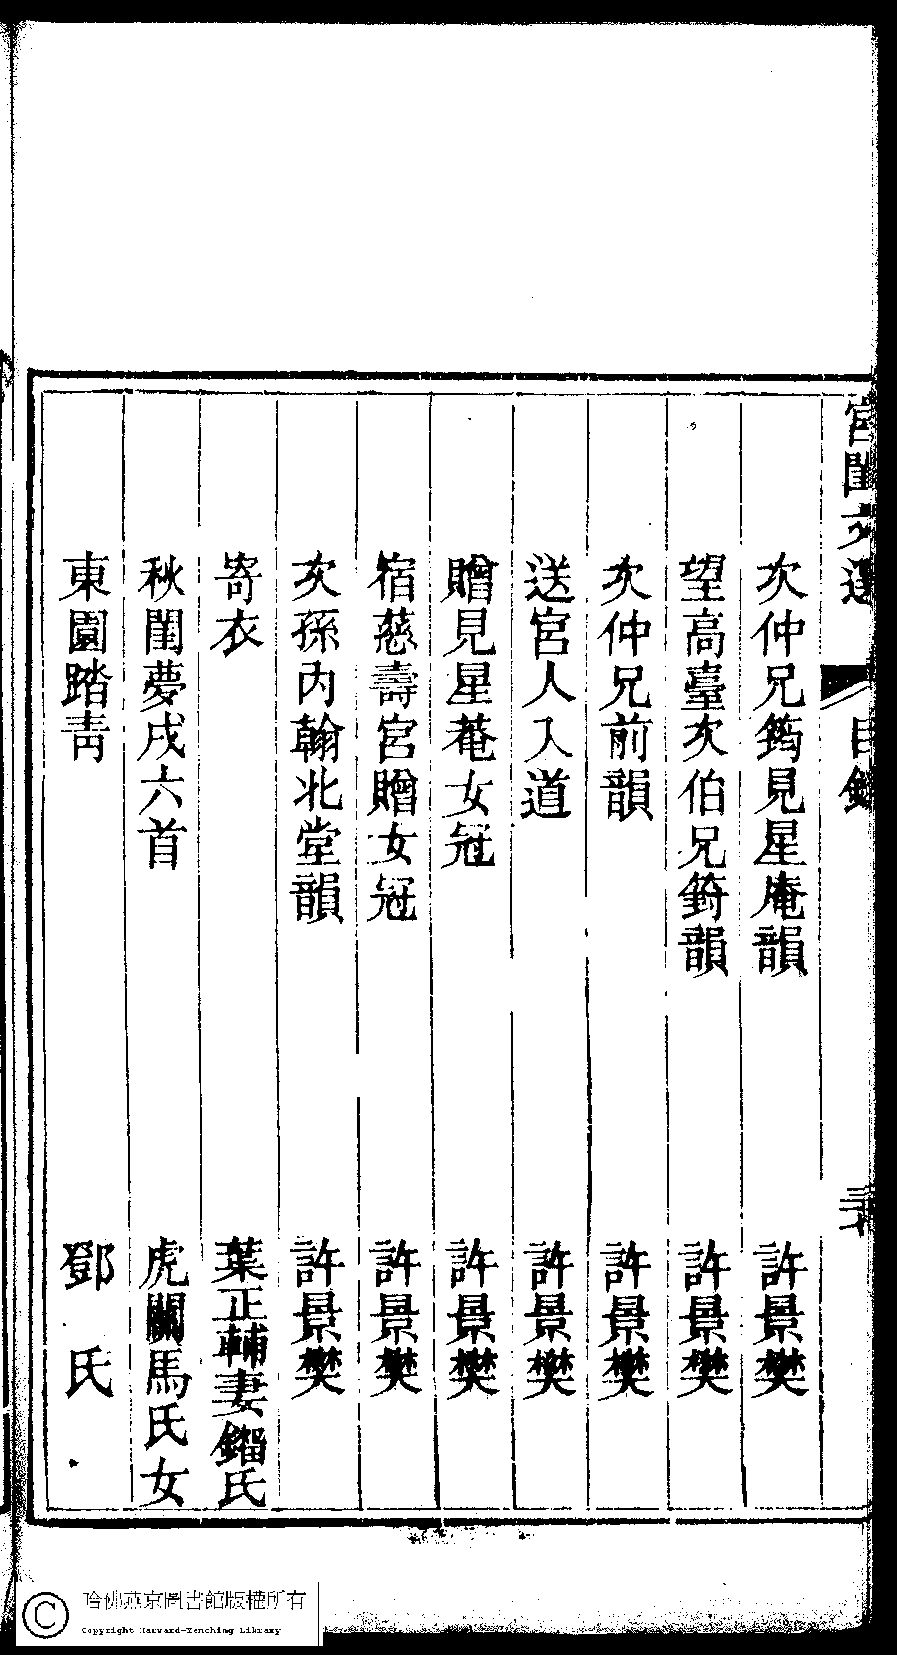 宮閨文選 目錄
次仲兄筠見星庵韻 許景樊
望高臺次伯兄篈韻 許景樊
次仲兄前韻 許景樊
送宮人入道 許景樊
贈見星菴女冠 許景樊
宿慈壽宮贈女冠 許景樊
次孫內翰北堂韻 許景樊
寄衣 葉正輔妻鎦氏
秋閨夢戍六首 虎關馬氏女
東園踏青 鄧氏
哈佛燕京圖書館版權所有
Copyright Harvard-Yenching Library